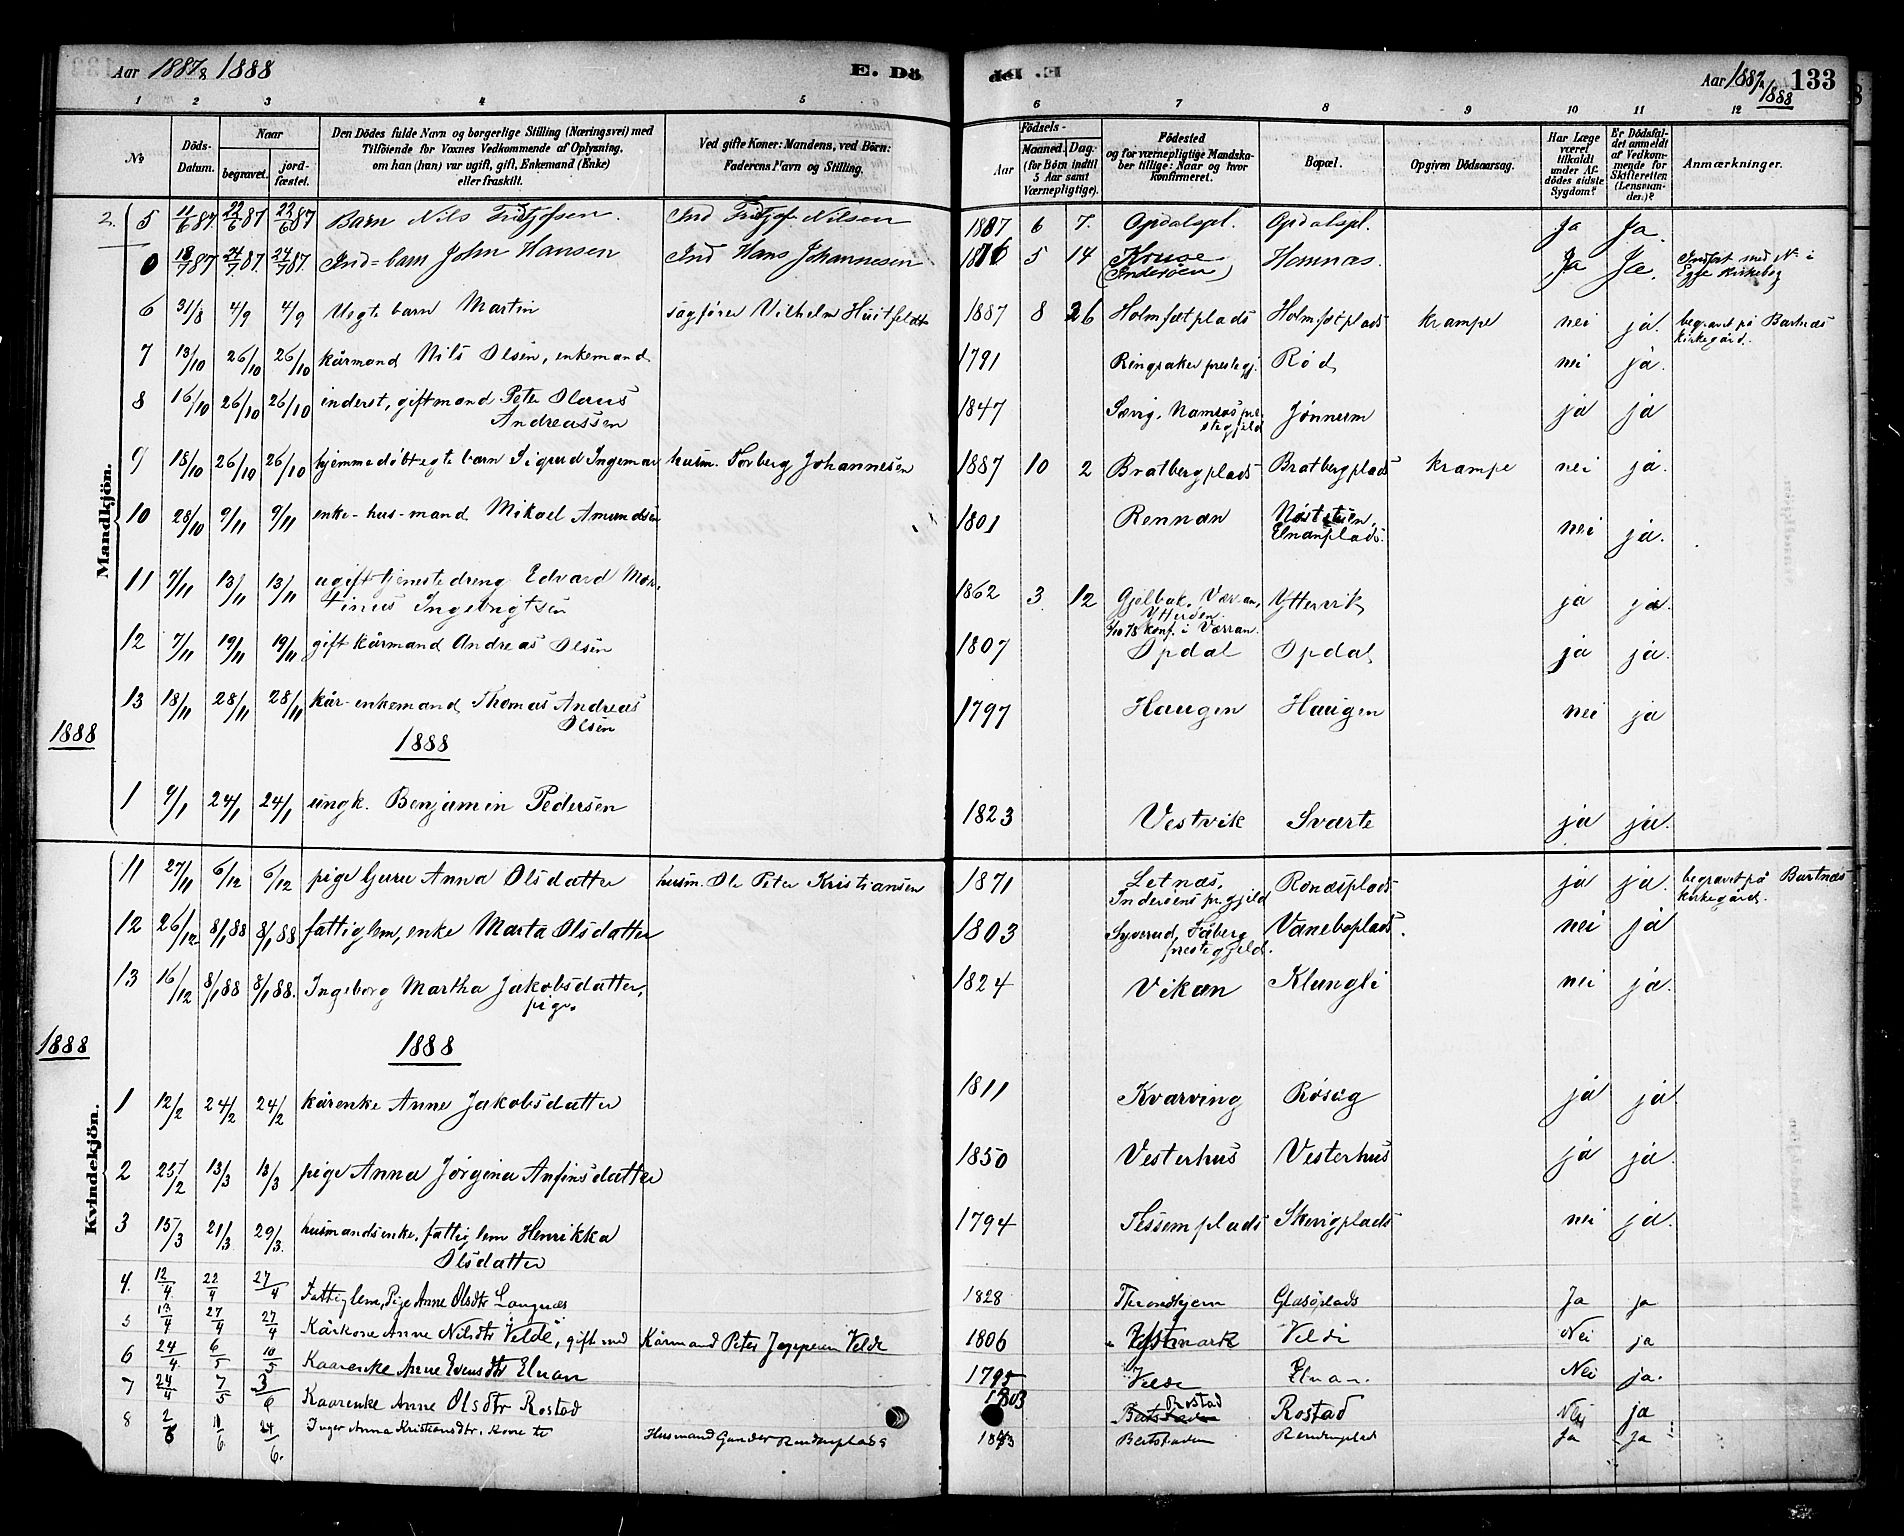 Aar 1887 & 1888 E. Dö
de. E. Aar 1887 & 1888 133
1 2 3 4 5 6 7 8 9 10 11 12
No
Döds-Datum.
Naar
begravet.
jordfæstet.
Den Dödes fulde Navn og borgerlige Stilling (Næringsvei) med
Tilföiende for Voxnes Vedkommende af Oplysning,
om han (hun) var ugift, gift, Enkemand (Enke)
eller fraskilt.
Ved gifte Koner: Mandens, ved Börn:
Faderens Navn og Stilling.
Födsels-
Aar
Maaned. Dag.
(for Börn indtil
5 Aar samt
Værnepligtige).
Födested
og for værnepligtige Mandska-
ber tillige: Naar og hvor
konfirmeret.
Bopæl.
Opgiven Dödsaarsag.
Har Læge
været
tilkaldt
under Af-
dödes sidste
Sygdom?
Er Dödsfal-
det anmeldt
af Vedkom-
mende for
Skifteretten
(Lensman-
den)?
Anmærkninger.
Mandkjön.
2. 5 11/6 87. 22/6 87 22/6 87 Barn Nils Fritjofsen. Ind Fritjof Nilsen 1887 6 7. Opdalspl. Opdalspl. Ja Ja.
0 18/7 87 24/7 87. 24/7 87. Ind-barn John Hansen Ind Hans Johannesen 1876 5 14 (Inderøen) Homnæs. Ja Ja. Indført med N. i
Egge kirkebog
6 31/8 4/9 4/9 Uegte barn Martin sagfører Vilhelm Huitfeldt 1887 8 26 Holmsetplads Holmsetplads krampe nei ja. begravet på Bartnæs
kirkegård.
7 13/10 26/10 26/10 kårmand Nils Olsen, enkemand 1791 Ringsaker prestegj. Rød nei ja.
8 16/10 26/10 26/10 inderst, giftmand Peter Olaus
Andreassen 1847 Sævig, Namsos pre-
stegjeld Jønnem ja ja
9 18/10 26/10 26/10 hjemmedøbt egte barn Sigurd Ingemar husm. Torberg Johannesen 1887 10 2 Bratbergplads Bratbergplads krampe nei ja.
10 28/10 9/11 9/11 enke-hus-mand Mikael Amundsen 1801 Rennan
Elnanplads. nei ja.
11 7/11 13/11 13/11 ugift tjenestedreng Edvard Mar-
tinus Ingebrigtsen 1862 3 12 Gjelbak. Værran,
Ytterøen.
konf. i Værran. Yttervik ja ja.
12 7/11 19/11 19/11 gift kårmand Andreas Olsen 1807 Opdal Opdal ja ja.
13 18/11 28/11 28/11 kår-enkemand Thomas Andreas
Olsen 1797 Haugen Haugen nei ja
1888 1888
1 9/1 24/1 24/1 ungk. Benjamin Pedersen 1823 Vestvik Svarte ja ja.
Kvindekjön.
11 27/11 6/12 6/12 pige Guru Anna Olsdatter husm. Ole Peter Kristiansen 1871 Letnæs,
Inderøens pr.gjeld Ronæsplads ja ja. begravet på Bartnæs
kirkegård.
12 26/12 8/1 88 8/1 88 fattiglem, enke Marta Olsdatter 1803 Syverud, Fåberg
prestegjeld. Vaneboplads. nei ja
13 16/12 8/1 88 8/1 88. Ingeborg Martha Jakobsdatter,
pige. 1824 Vikan Klungli nei ja.
1888 1888
1 12/2 24/2 24/2 kårenke Anne Jakobsdatter 1811 Kvarving Røseg ja ja.
2 25/2 13/3 13/3 pige Anna Jørgina Anfinsdatter 1850 Vesterhus Vesterhus ja ja.
3 15/3 21/3 29/3. husmandsenke, fattiglem Henrikka
Olsdatter 1794 Tessemplads Skevigplads nei ja.
4. 12/4 22/4 27/4 Fattiglem, Pige Anne Olsdtr Langnæs 1828 Throndhjem Glasøplads Ja ja
5 13/4 27/4 27/4 Kårkone Anne Nilsdtr Velde, gift med Kårmand Peter Jeppesen Velde 1806 Vestmark Velde Nei ja
6 24/4. 6/5 10/5 Kaarenke Anne Evensdtr Elnan 1795 Velde Elnan. Nei ja.
7 24/4 7/5 3/6 Kaarenke Anne Olsdtr Rostad 1803 Rostad Rostad Nei ja
8 2/6 11/6 24/6. Inger Anna Kristiansdtr. Kone te Husmand Gunder Rendemplads Rendemplads Ja Ja